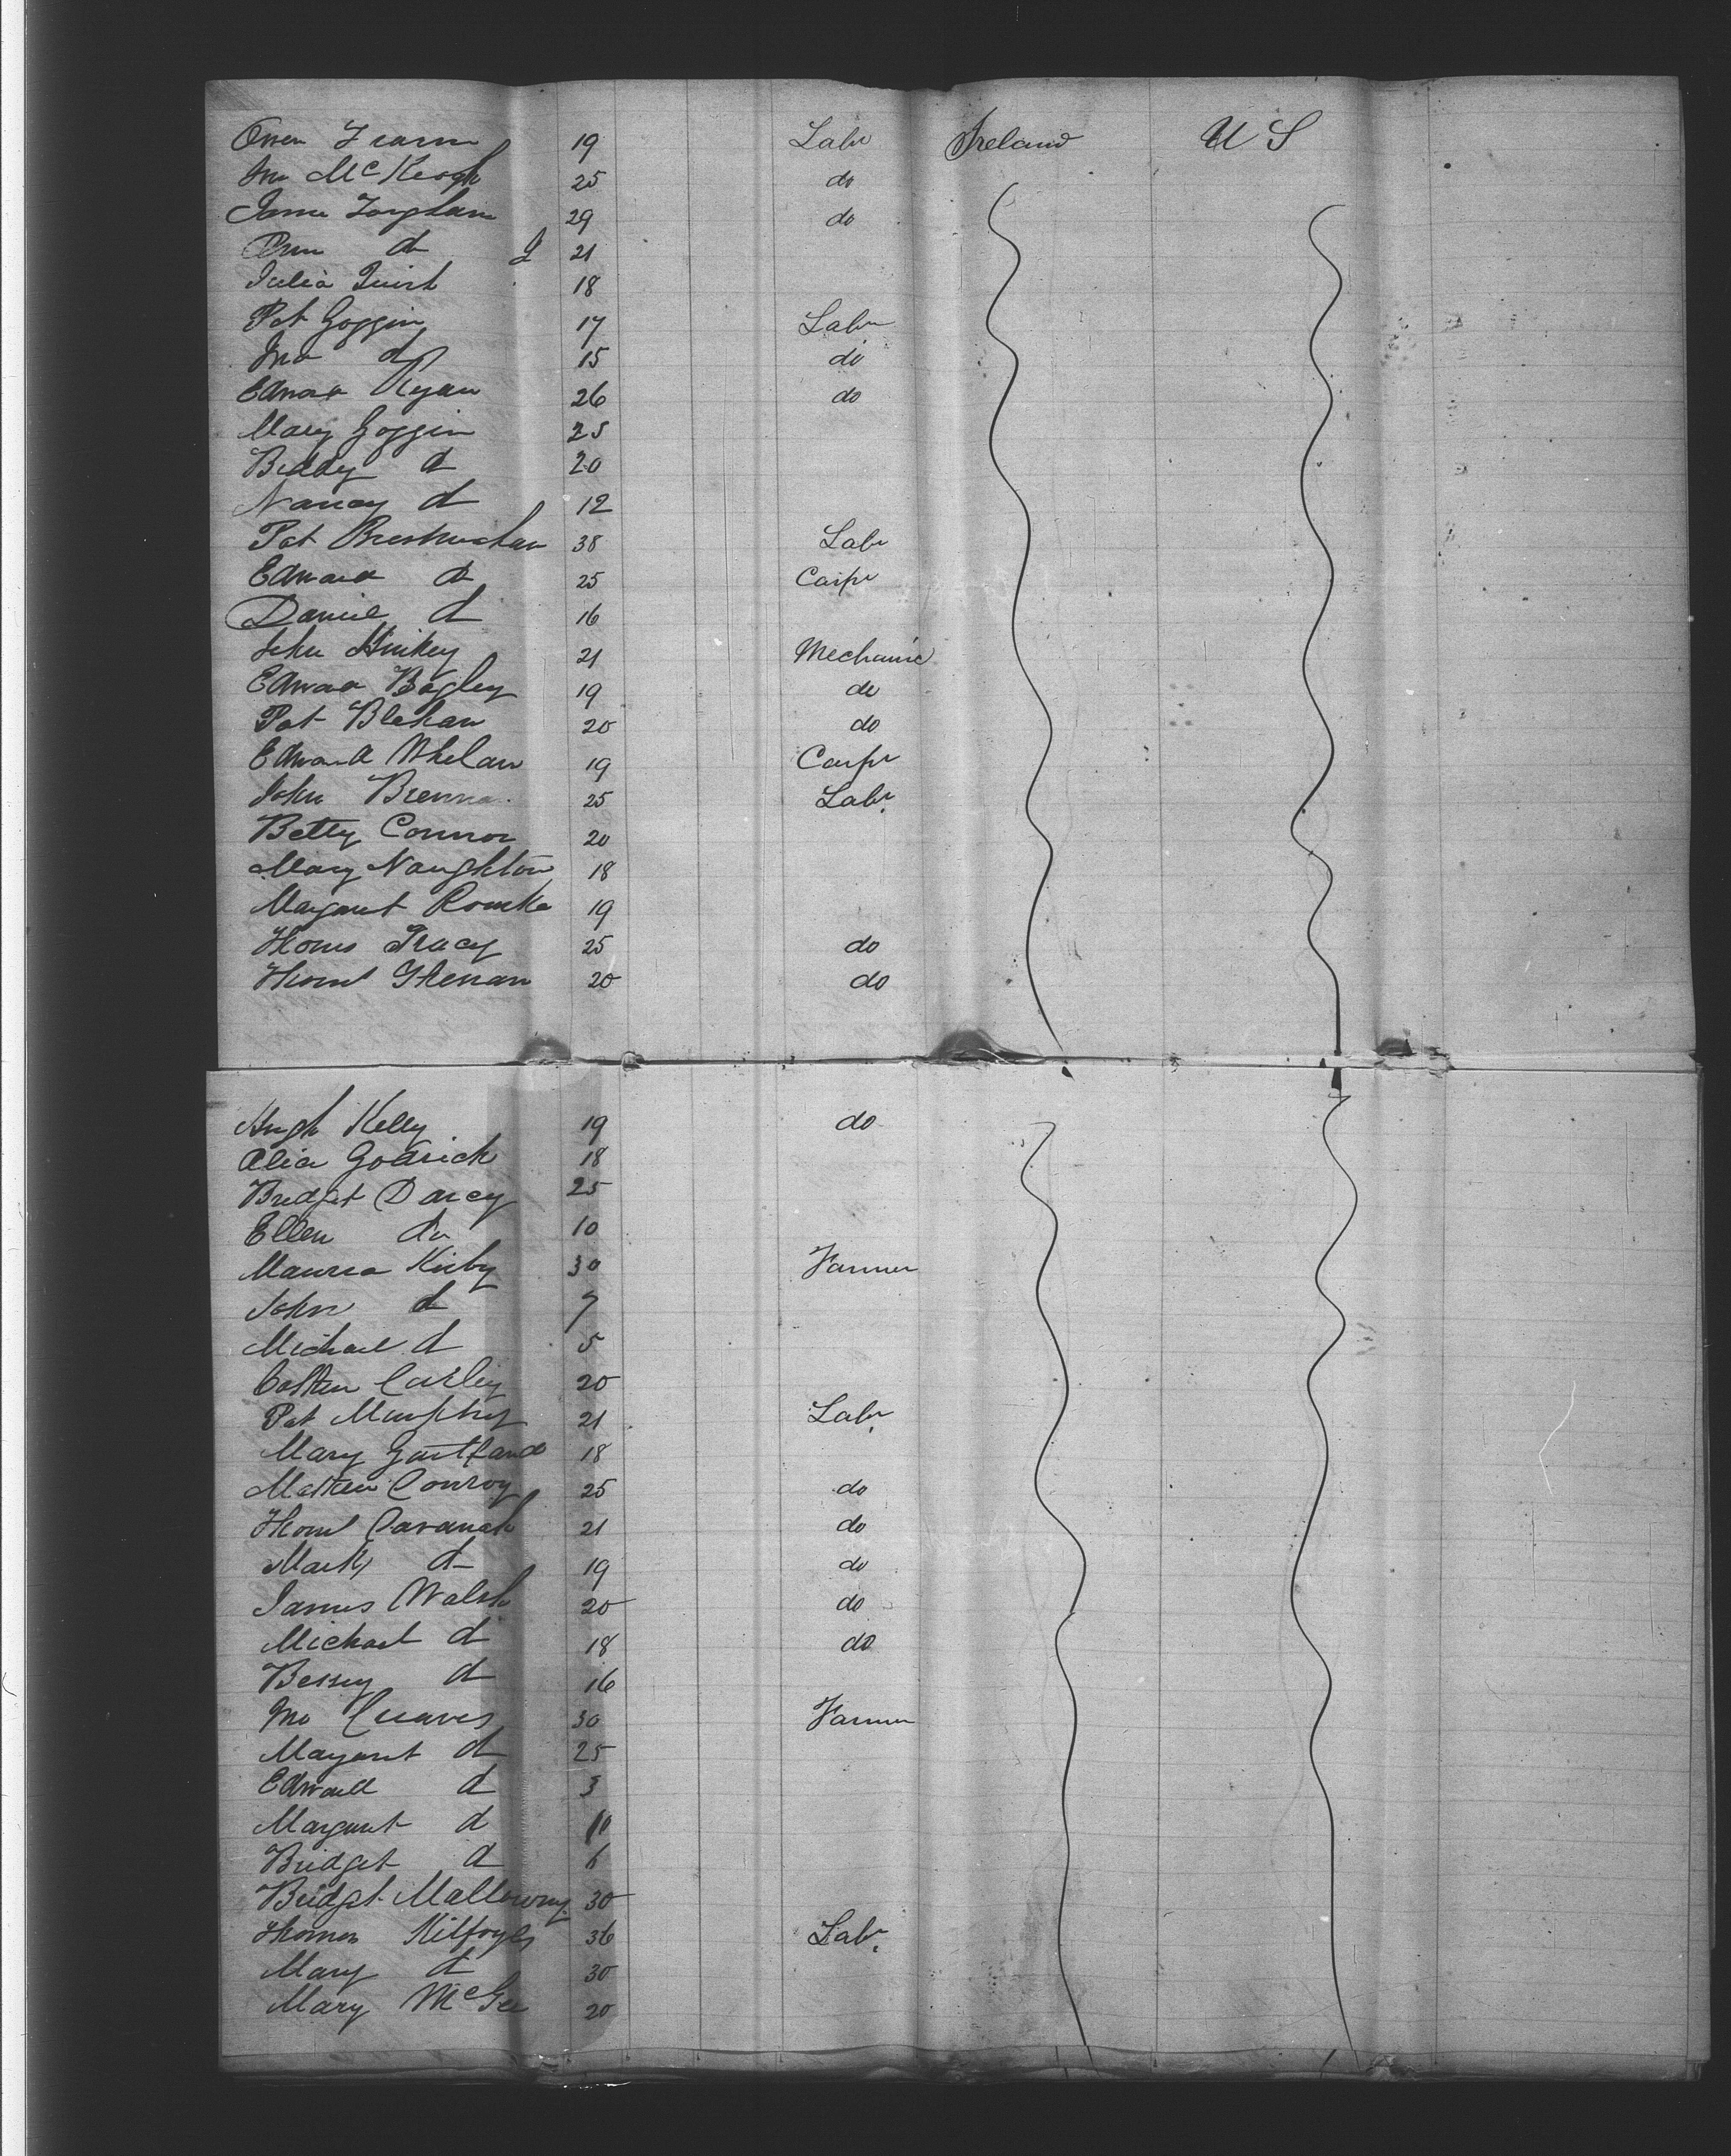 Owen 19 Labr Ireland U S
Jno McKeogh 25 do
29 do
Ann do 21
Julia Quirk 18
Pat Goggin 17 Labr
Jno do 15 do
Edward Ryan 26 do
Mary Goggin 25
Biddy do 20
Nancy do 12
Pat 38 Labr
Edward do 25 Carpr
Daniel do 16
John Hickey 21 Mechanic
Edward Bagley 19 do
Pat Blehan 20 do
Edward Whelan 19 Carpr
John Brenna 25 Labr
Betty Connor 20
Mary Naughton 18
Margaret Rourke 19
Thoms Tracy 25 do
Thoms 20 do
Hugh Kelly 19 do
Alice Godrick 18
Bridget Darcy 25
Ellen do 10
Maurice Kirby 30 Farmer
John do 7
Michael do 5
20
Pat Murphy 21 Labr
Mary Gartland 18
Mathew Conroy 25 do
Thoms Cavanah 21 do
Mark do 19 do
James Walsh 20 do
Michael do 18 do
Bessy do 16
Jno 30 Farmer
Margaret do 25
Edward do 3
Margaret do 10
Bridget do 6
Bridget Mallowny 30
Thomas Kilfoyle 36 Labr
Mary do 30
Mary McGee 20